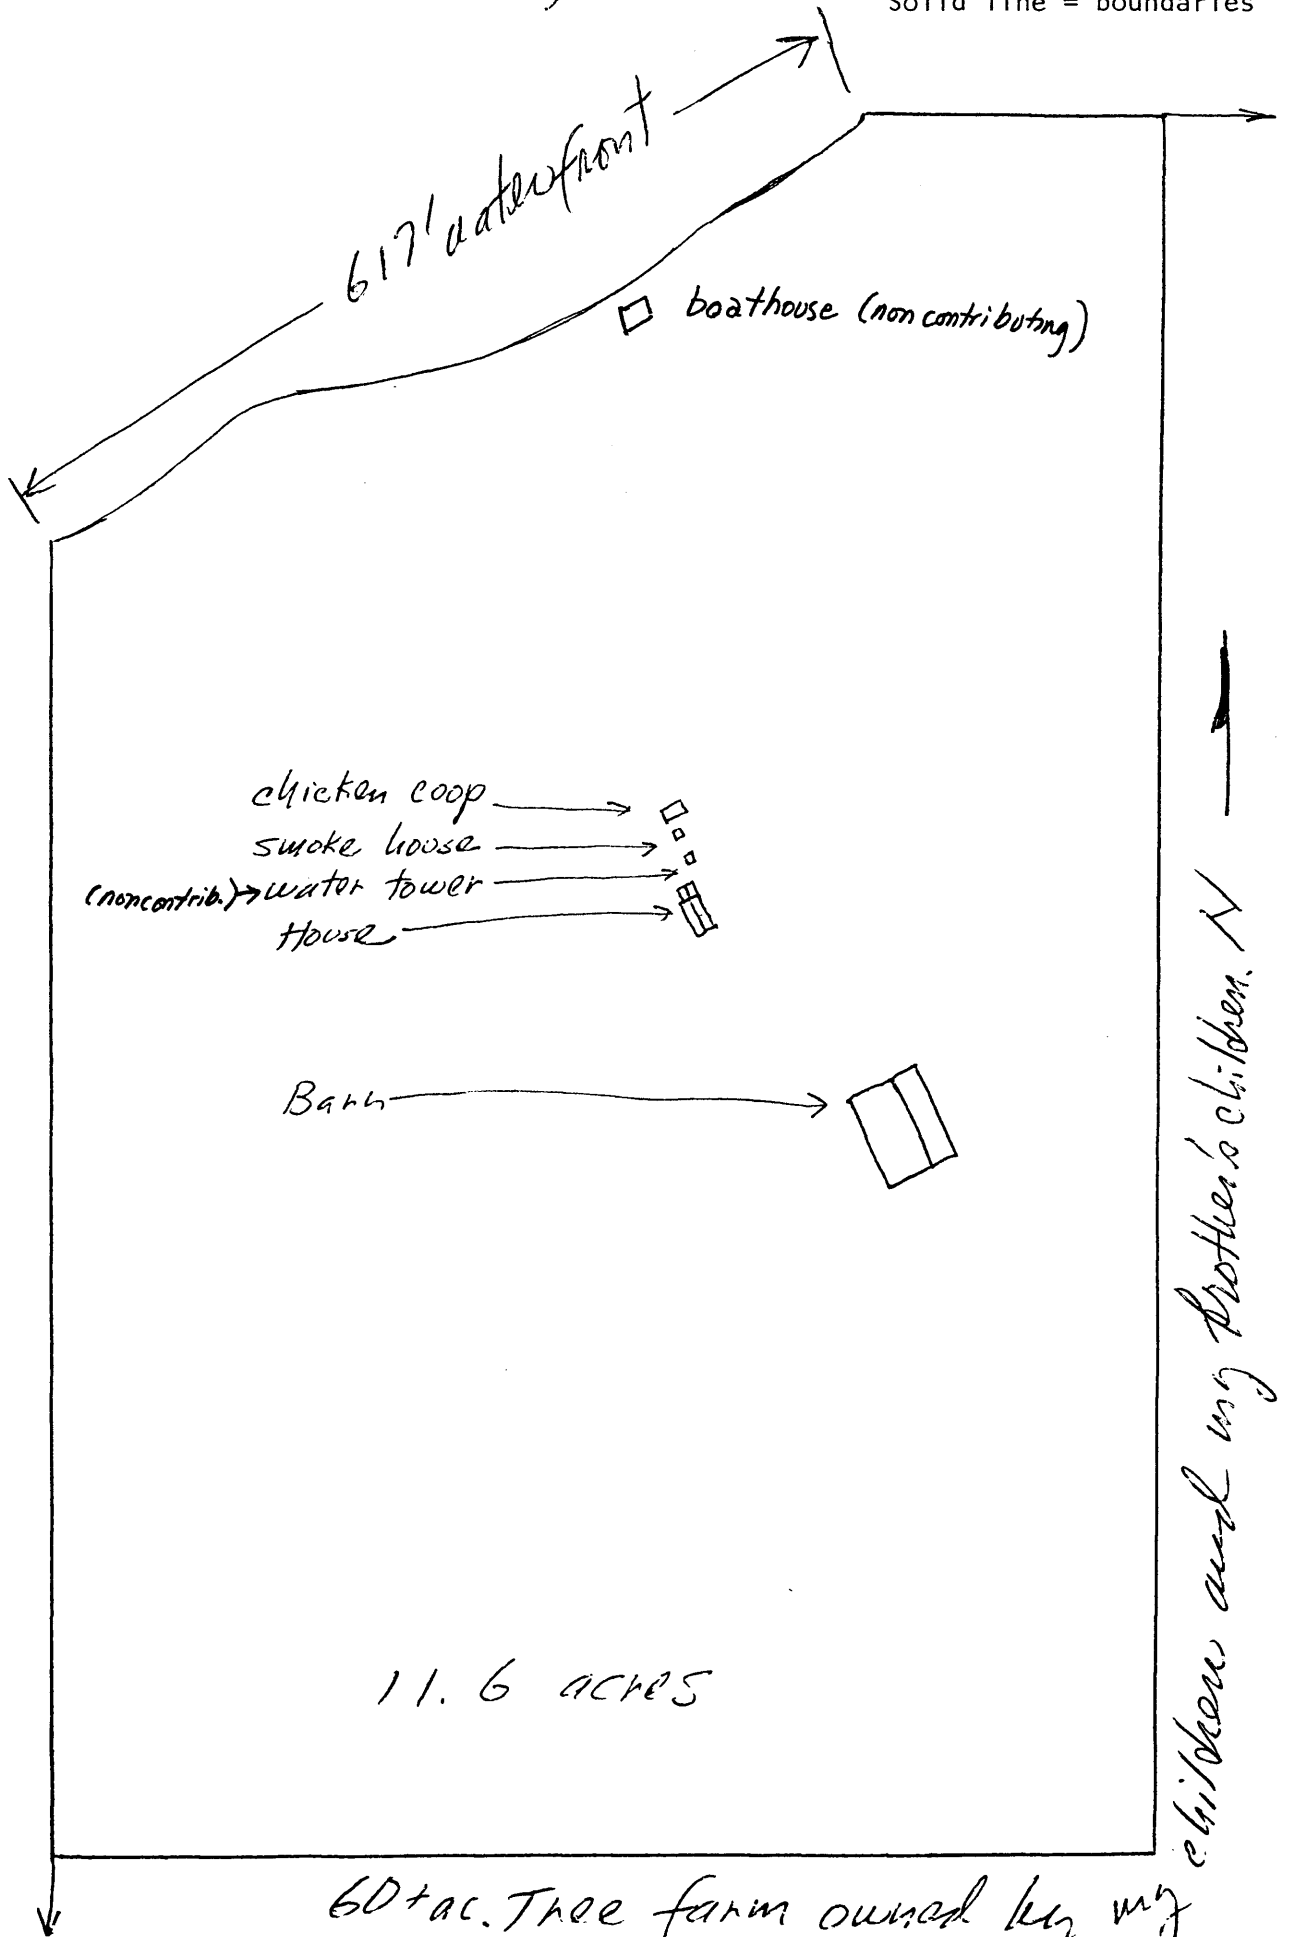 Solid line = boundaries
617' waterfront
boathouse (noncontributing)
chicken coop
smoke house
(noncontrib.) water tower
House
Barn
N
11.6 acres
60+ac. Tree farm owned by my
children and my brother's children.